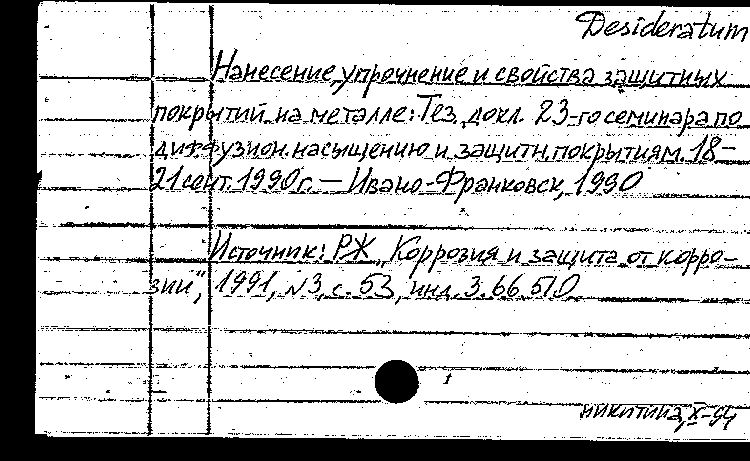 Desideratum
Нанесение, упрочнение и свойства защитных
покрытий на металле: Тез. докл. 23-го семинара по
диффузион. насыщению и защитн. покрытиям. 18-
21 сент. 1990 г. — Ивано-Франковск, 1990
Источник: РЖ „Коррозия и защита от корро-
зии", 1991, №3, с. 53, инд. 3.66.510
никитина, X-94